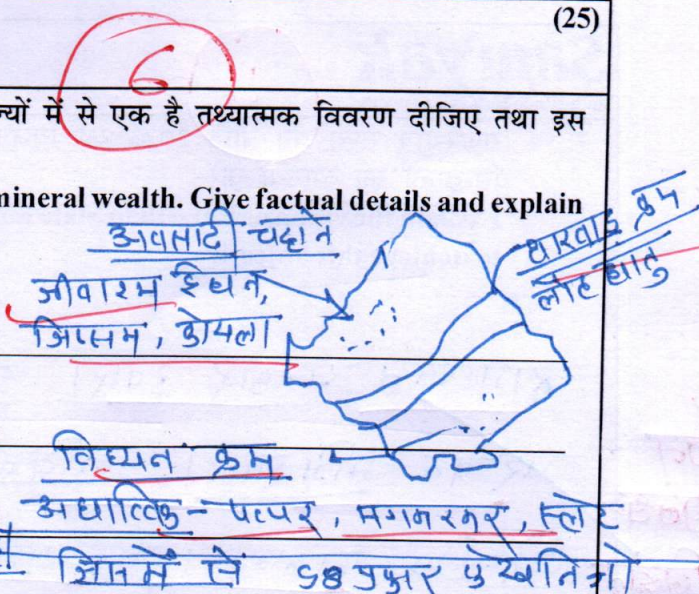 (25)
6
न्यों में से एक है तथ्यात्मक विवरण दीजिए तथा इस
mineral wealth. Give factual details and explain
अवसादी चट्टाने
जीवाश्म ईंधन,
जिप्सम, कोयला
धारवाड़ क्रम
लौह धातु
विंध्यन क्रम
अधात्विक - पत्थर, संगमरमर, स्लेट
जिसमें से 58 प्रकार के खनिजो